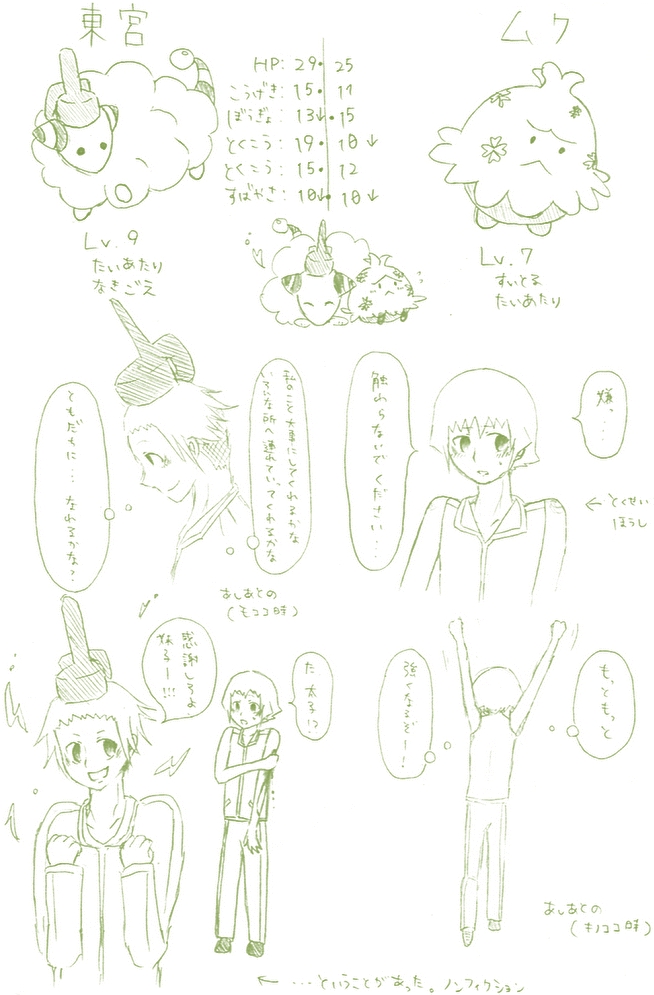 東宮
ムク
HP: 29・25
こうげき: 15・11
ぼうぎょ: 13↓・15
とくこう: 19・10↓
とくこう: 15・12
すばやさ: 10↓・10↓
Lv. 9
たいあたり
なきごえ
Lv. 7
すいとる
たいあたり
嫌っ...
触わらないでください...
←とくせい
ほうし
私のこと大事にしてくれるかな
いろいろな所へ連れていってくれるかな
ともだちに... なれるかな?
あしあとの
(モココ時)
もっともっと
強くなるぞー!
あしあとの
(キノココ時)
た 太子!?
感謝しろよ
妹子ー!!!
← ...ということがあった。ノンフィクション